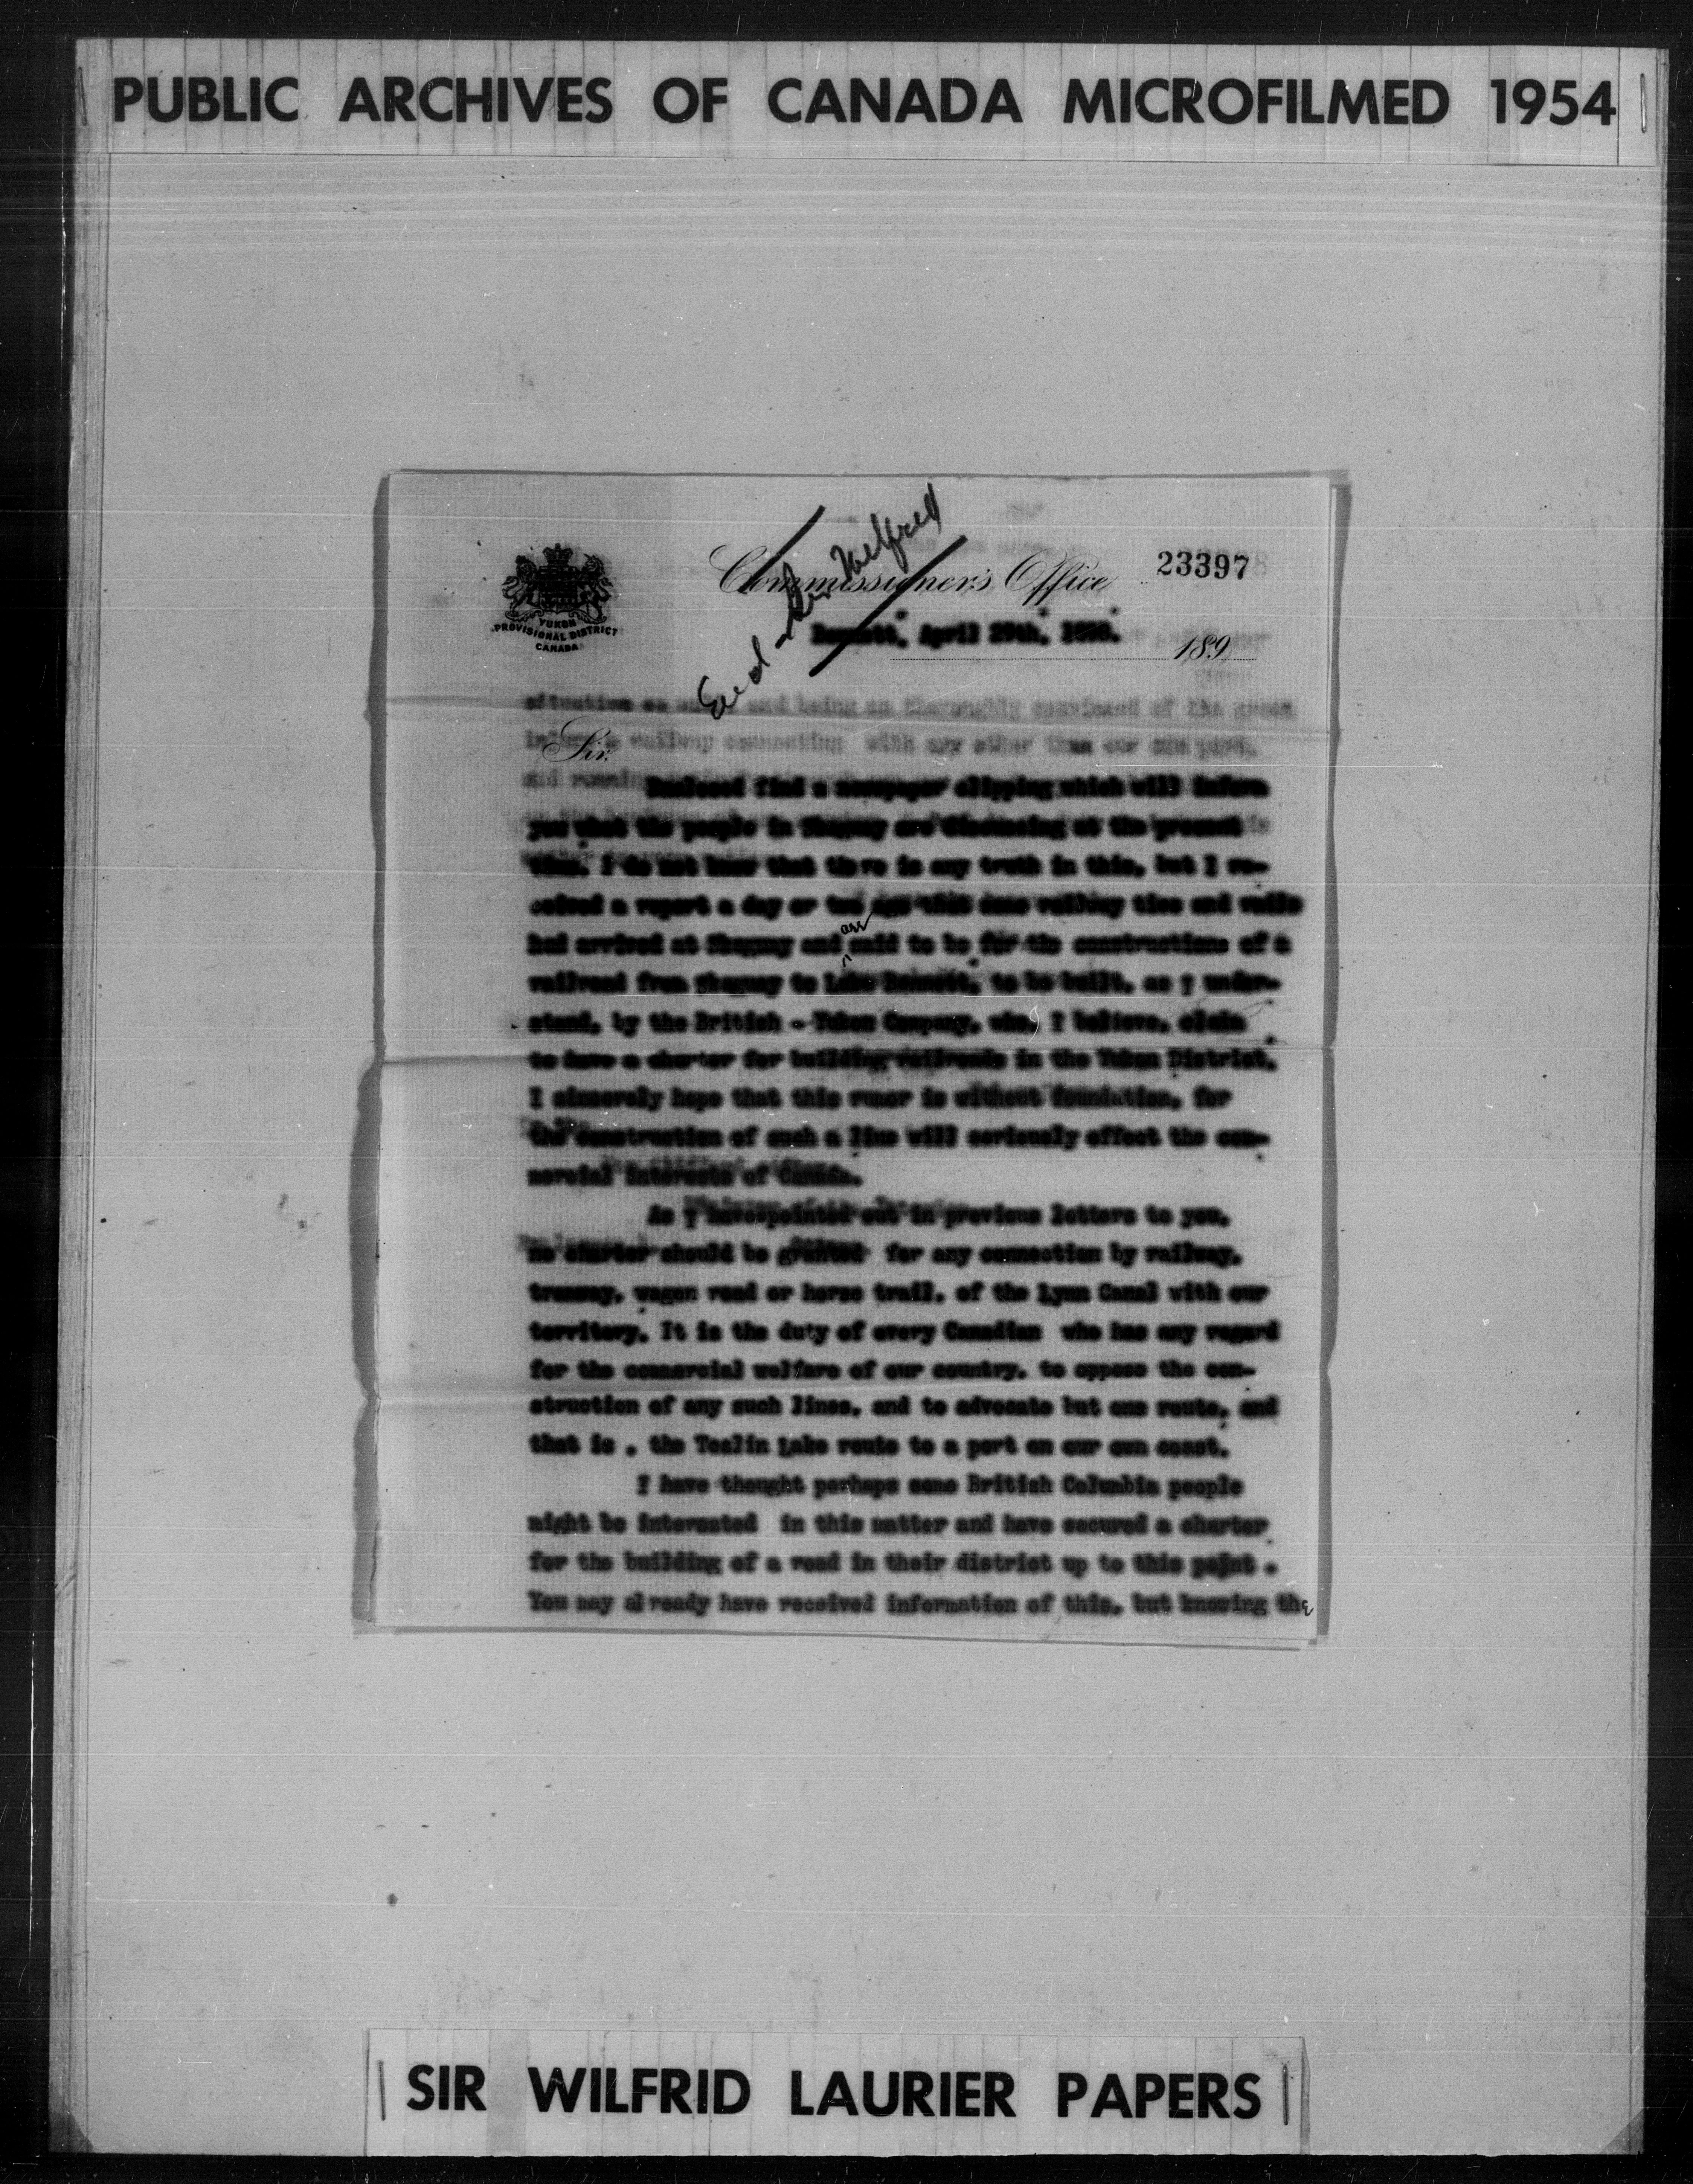 PUBLIC ARCHIVES OF CANADA MICROFILMED 1954
Encl - Sir Wilfred
Commissioner's Office 23397
YUKON
PROVISIONAL DISTRICT
CANADA
Bennett, April 29th, 1898.
189
situation as and being so thoroughly convinced of the great
in railway connecting with any other than our own port,
Sir,
and
Enclosed find a newspaper clipping which will inform
you what the people in Skaguay are discussing at the present
time. I do not know that there is any truth in this, but I re-
ceived a report a day or two ago that some railway ties and rails
had arrived at Skaguay and are said to be for the constructions of a
railroad from Skaguay to Lake Bennett, to be built, as I under-
stand, by the British - Yukon Company, who, I believe, claim
to have a charter for building railroads in the Yukon District.
I sincerely hope that this rumor is without foundation, for
the construction of such a line will seriously effect the com-
mercial interests of Canada.
As I have pointed out in previous letters to you,
no charter should be granted for any connection by railway,
tramway, wagon road or horse trail, of the Lynn Canal with our
territory. It is the duty of every Canadian who has any regard
for the commercial welfare of our country, to oppose the con-
struction of any such lines, and to advocate but one route, and
that is , the Teslin Lake route to a port on our own coast.
I have thought perhaps some British Columbia people
might be interested in this matter and have secured a charter
for the building of a road in their district up to this point .
You may already have received information of this, but knowing the
SIR WILFRID LAURIER PAPERS